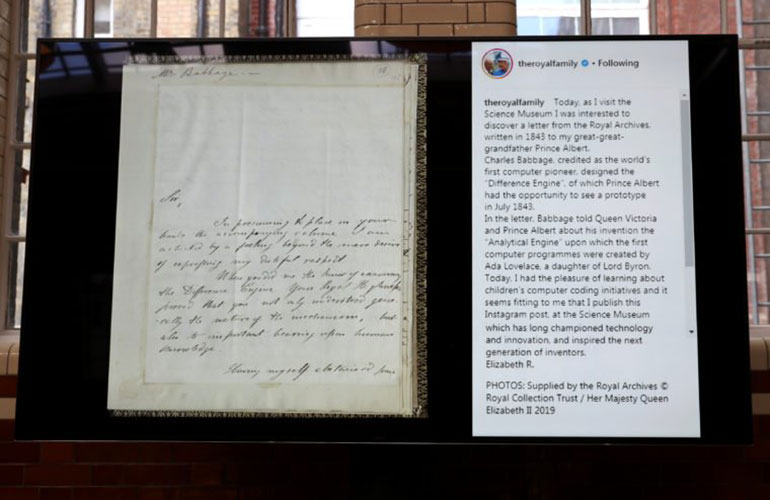 Mr Babbage
Sir,
In presuming to place in your
hands the accompanying volume I am
actuated by a feeling beyond the mere desire
of expressing my dutiful respect
When you did me the honor of examining
the Difference Engine Your Royal Highness
proved that you not only understood gene-
rally the nature of the mechanism, but
also its important bearing upon human
knowledge.
Having myself abstained from
theroyalfamily • Following
theroyalfamily Today, as I visit the
Science Museum I was interested to
discover a letter from the Royal Archives,
written in 1843 to my great-great-
grandfather Prince Albert.
Charles Babbage, credited as the world's
first computer pioneer, designed the
"Difference Engine", of which Prince Albert
had the opportunity to see a prototype
in July 1843.
In the letter, Babbage told Queen Victoria
and Prince Albert about his invention the
"Analytical Engine" upon which the first
computer programmes were created by
Ada Lovelace, a daughter of Lord Byron.
Today, I had the pleasure of learning about
children's computer coding initiatives and it
seems fitting to me that I publish this
Instagram post, at the Science Museum
which has long championed technology
and innovation, and inspired the next
generation of inventors.
Elizabeth R.
PHOTOS: Supplied by the Royal Archives ©
Royal Collection Trust / Her Majesty Queen
Elizabeth II 2019